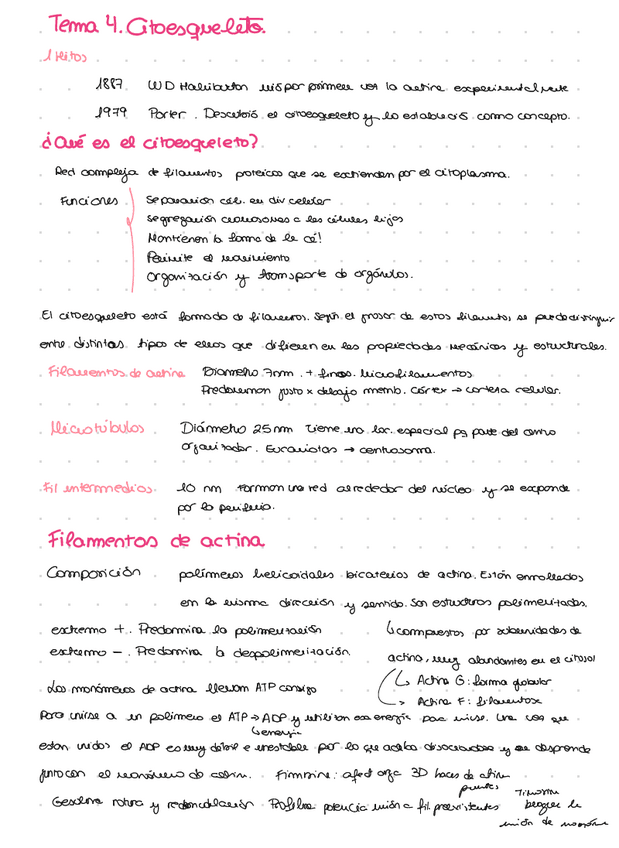 Tema 4. Citoesqueleto.
Hitos
1887 WD Halliburton vió por primera vez la actina experimentalmente
1979 Porter. Descubrió el citoesqueleto y lo estableció como concepto.
¿Qué es el citoesqueleto?
Red compleja de filamentos proteicos que se extienden por el citoplasma.
Funciones Separación cél. en div celular
segregación cromosomas a las células hijas
Mantienen la forma de la cél
Permite el movimiento
Organización y transporte de orgánulos.
El citoesqueleto está formado de filamentos. Según el grosor de estos filamentos, se puede distinguir
entre distintos tipos de ellos que difieren en las propiedades mecánicas y estructurales.
Filamentos de actina Diámetro 7nm. + finos. Microfilamentos
Predominan justo x debajo memb. Córtex → corteza celular.
Microtúbulos Diámetro 25 nm Tiene una loc. especial pq parte del centro
organizador. Eucariotas → centrosoma.
Fil intermedios 10 nm Forman una red alrededor del núcleo y se expande
por la periferia.
Filamentos de actina
Composición polímeros helicoidales bicatenios de actina. Están enrollados
en la misma dirección y sentido. Son estructuras polimerizadas.
extremo +. Predomina la polimerización ↳compuestos por subunidades de
extremo -. Predomina la despolimerización. actina, muy abundantes en el citosol
Los monómeros de actina llevan ATP consigo ↳ Actina G: forma globular
→ Actina F: filamentosa
Para unirse a un polímero el ATP → ADP y utilizan esa energía para unirse. Una vez que
↳energía
están unidos el ADP es muy débil e inestable por lo que acaba disociándose y se desprende
junto con el monómero de actina. Fimbrina: afect orga 3D haces de actina
puentes
Gesolina rotura y Profilina potencia unión a fil preexistentes
Timosina
bloquea la
unión de